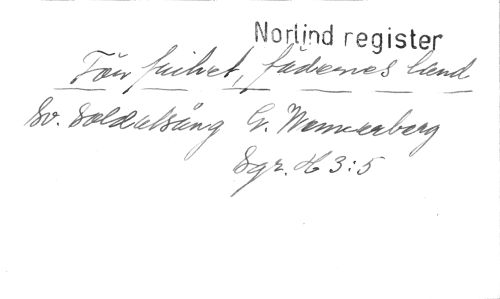 Norlind register
För frihet, fädernes land
Sv. Soldatsång G. Wennerberg
Sgr. H 3:5